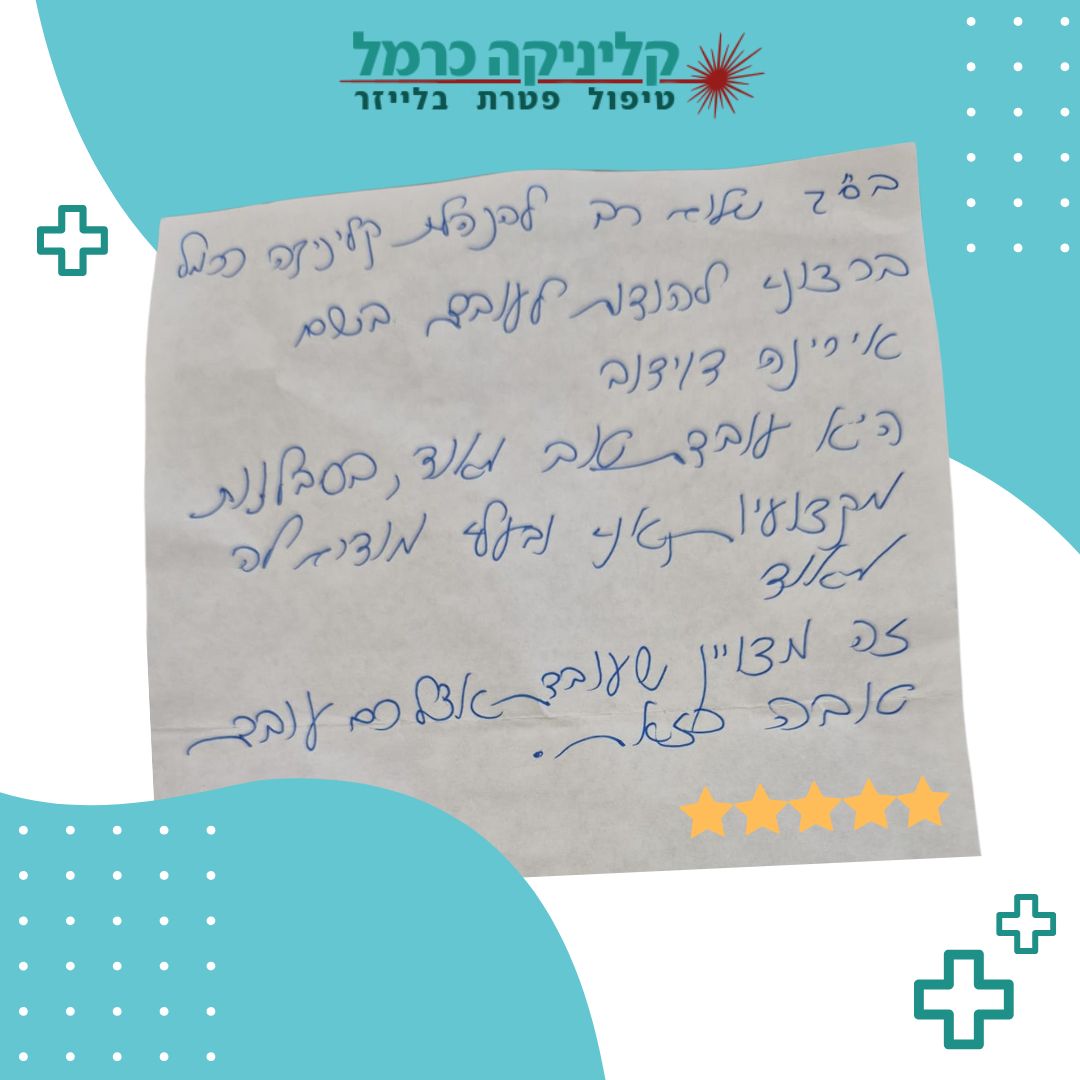 קליניקה כרמל
טיפול פטרת בלייזר
בס"ד שלום רב להנהלת קליניקה כרמל
ברצוני להודות לעובדת בשם
אירינה דוידוב
היא עובדת טוב מאוד, בסבלנות
מקצועיות אני ובעלי מודים לה
מאוד
זה מצויין שעובדת אצלכם עובדת
טובה כזאת.